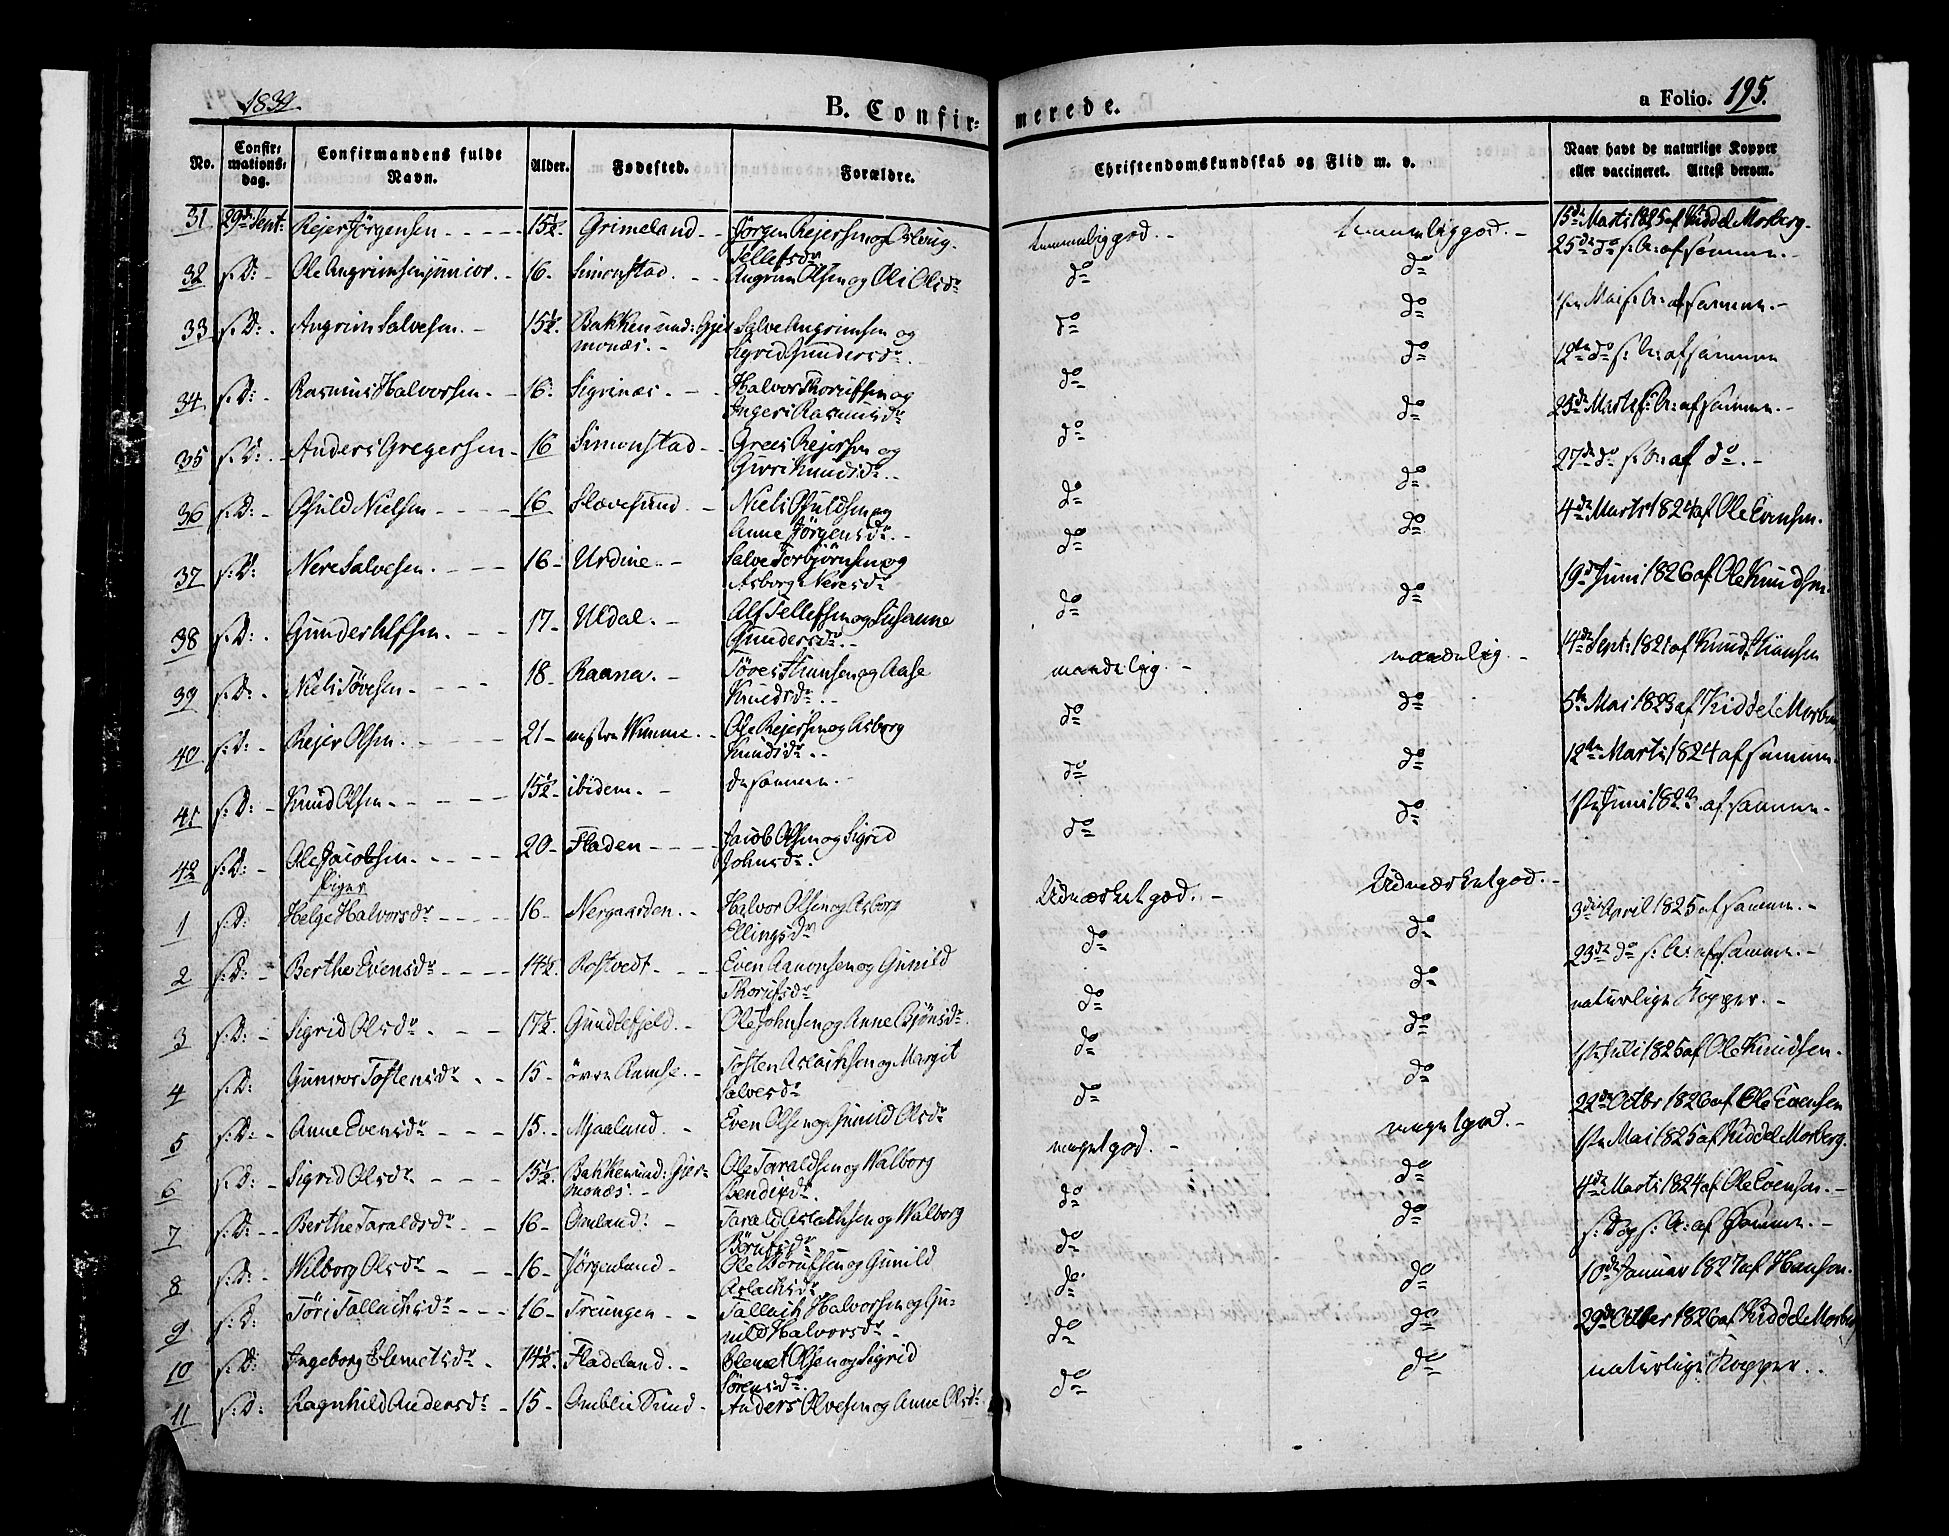 1839. B. Confir= merede. a Folio. 195.
No. Confir: mations: dag. Confirmandens fulde Navn. Alder. Fødested. Forældre. Christendomskundskab og Flid m. v. Naar havt de naturlige Kopper eller vaccineret. Attest derom.
31 29de Sept: Rejer Jörgensen 15½ Grimeland Jörgen Rejersen og Aslaug Tellefsdr temmelig god. temmelig god. 15de Marts 1825 af Kiddel Morberg.
32 s: D: Ole Angrimsen junior. 16. Simonstad. Angrim Olsen og Oli Olsdr do do 25de do s: A: af samme.
33 s: D: Angrim Salvesen. 15½. Bakken und: Gjermonæs. Salve Angrimsen og Sigrid Gundersdr. do do Mai s: A: af samme.
34 s: D: Rasmus Halvorsen. 16. Sigrinæs. Halvor Thorufsen og Ingeri Rasmusdr do do 12te do s: A: af samme
35 s: D: Anders Gregersen 16 Simonstad Grees Rejersen og Gunri Knudsdr. do do 25de Marts s: A: af samme.
36 s: D: Osuld Nielsen 16 Slævesund. Niels Osuldsen og Anne Jörgensdr. do do 27de do s: A: af do.
37 s: D: Nere Salvesen. 16 Urdine. Salve Torbjörnsen og Asborg Neresdr do do 4de Marts 1824 af Ole Evensen.
38 s: D: Gunder Alfsen. 17. Uldal. Alf Tellefsen og Susanne Gundersdr. do do 19de Juni 1826 af Ole Knudsen.
39 s: D: Niels Tövesen. 18 Raana. Töves Hansen og Aase Knudsdr. maadelig. maadelig. 14de Sept: 1821 af Knud Hansen
40 s: D: Rejer Olsen. 21 Wimme. Ole Rejersen og Asborg Knudsdr. do do 5te Mai 1823 af Kiddel Morberg
41 s: D: Knud Olsen. 15½. ibidem. de samme. do do 12te Marts 1824 af samme.
42 s: D: Ole Jacobsen. 20 Fladen Jacob Olsen og Sigrid Johnsdr. do do 1ste Juni af samme.
Piger
1 s: D: Helge Halvorsdr 16 Nergaarden. Halvor Olsen og Asborg Ellingsdr Udmærket god. Udmærket god. 3die April 1825 af samme.
2 s: D: Berthe Evensdr 14½. Rostvedt Even Aanonsen og Gunild Thorufsdr do do 23de do s: A: af samme.
3 s: D: Sigrid Olsdr. 17½. Gundlefjeld. Ole Johnsen og Anne Bjönsdr. do do naturlige Kopper.
4 s: D: Gunvor Tostensdr. 15 övre Ramse. Tosten Aslachsen og Margit Salvesdr do do 1ste Juli 1825 af Ole Knudsen.
5 s: D: Anne Evensdr 15. Mjaaland. Even Olsen og Gunild Olsdr do do 22de Octbr 1826 af Ole Evensen
6 s: D: Sigrid Olsdr. 15½. Bakken und: Gjermonæs. Ole Taraldsen og Walborg Bendixdr. meget god. meget god. 1ste Mai 1825 af Kiddel Morberg.
7 s: D: Berthe Taraldsdr. 16 Omland: Tarald Aslachsen og Walborg Börufsdr do do 4de Marts 1824 af Ole Evensen.
8 s: D: Wilborg Olsdr 16 Jörgenland Ole Börufsen og Gunild Aslachsdr. do do s: D og s: A: af samme.
9 s: D: Töri Tallachsdr 16 Treungen Tallach Halvorsen og Gunild Halvorsdr. do do 10de Januar 1827 af Hansen.
10 s: D: Ingeborg Clemetsdr. 14½. Fladeland. Clemet Olsen og Sigrid Sörensdr. do do 29de Octber 1826 af Kiddel Morberg
11 s: D: Ragnhild Andersdr 15 Omblie Sund Anders Olvesen og Anne Olsdr. do do naturlige Kopper.